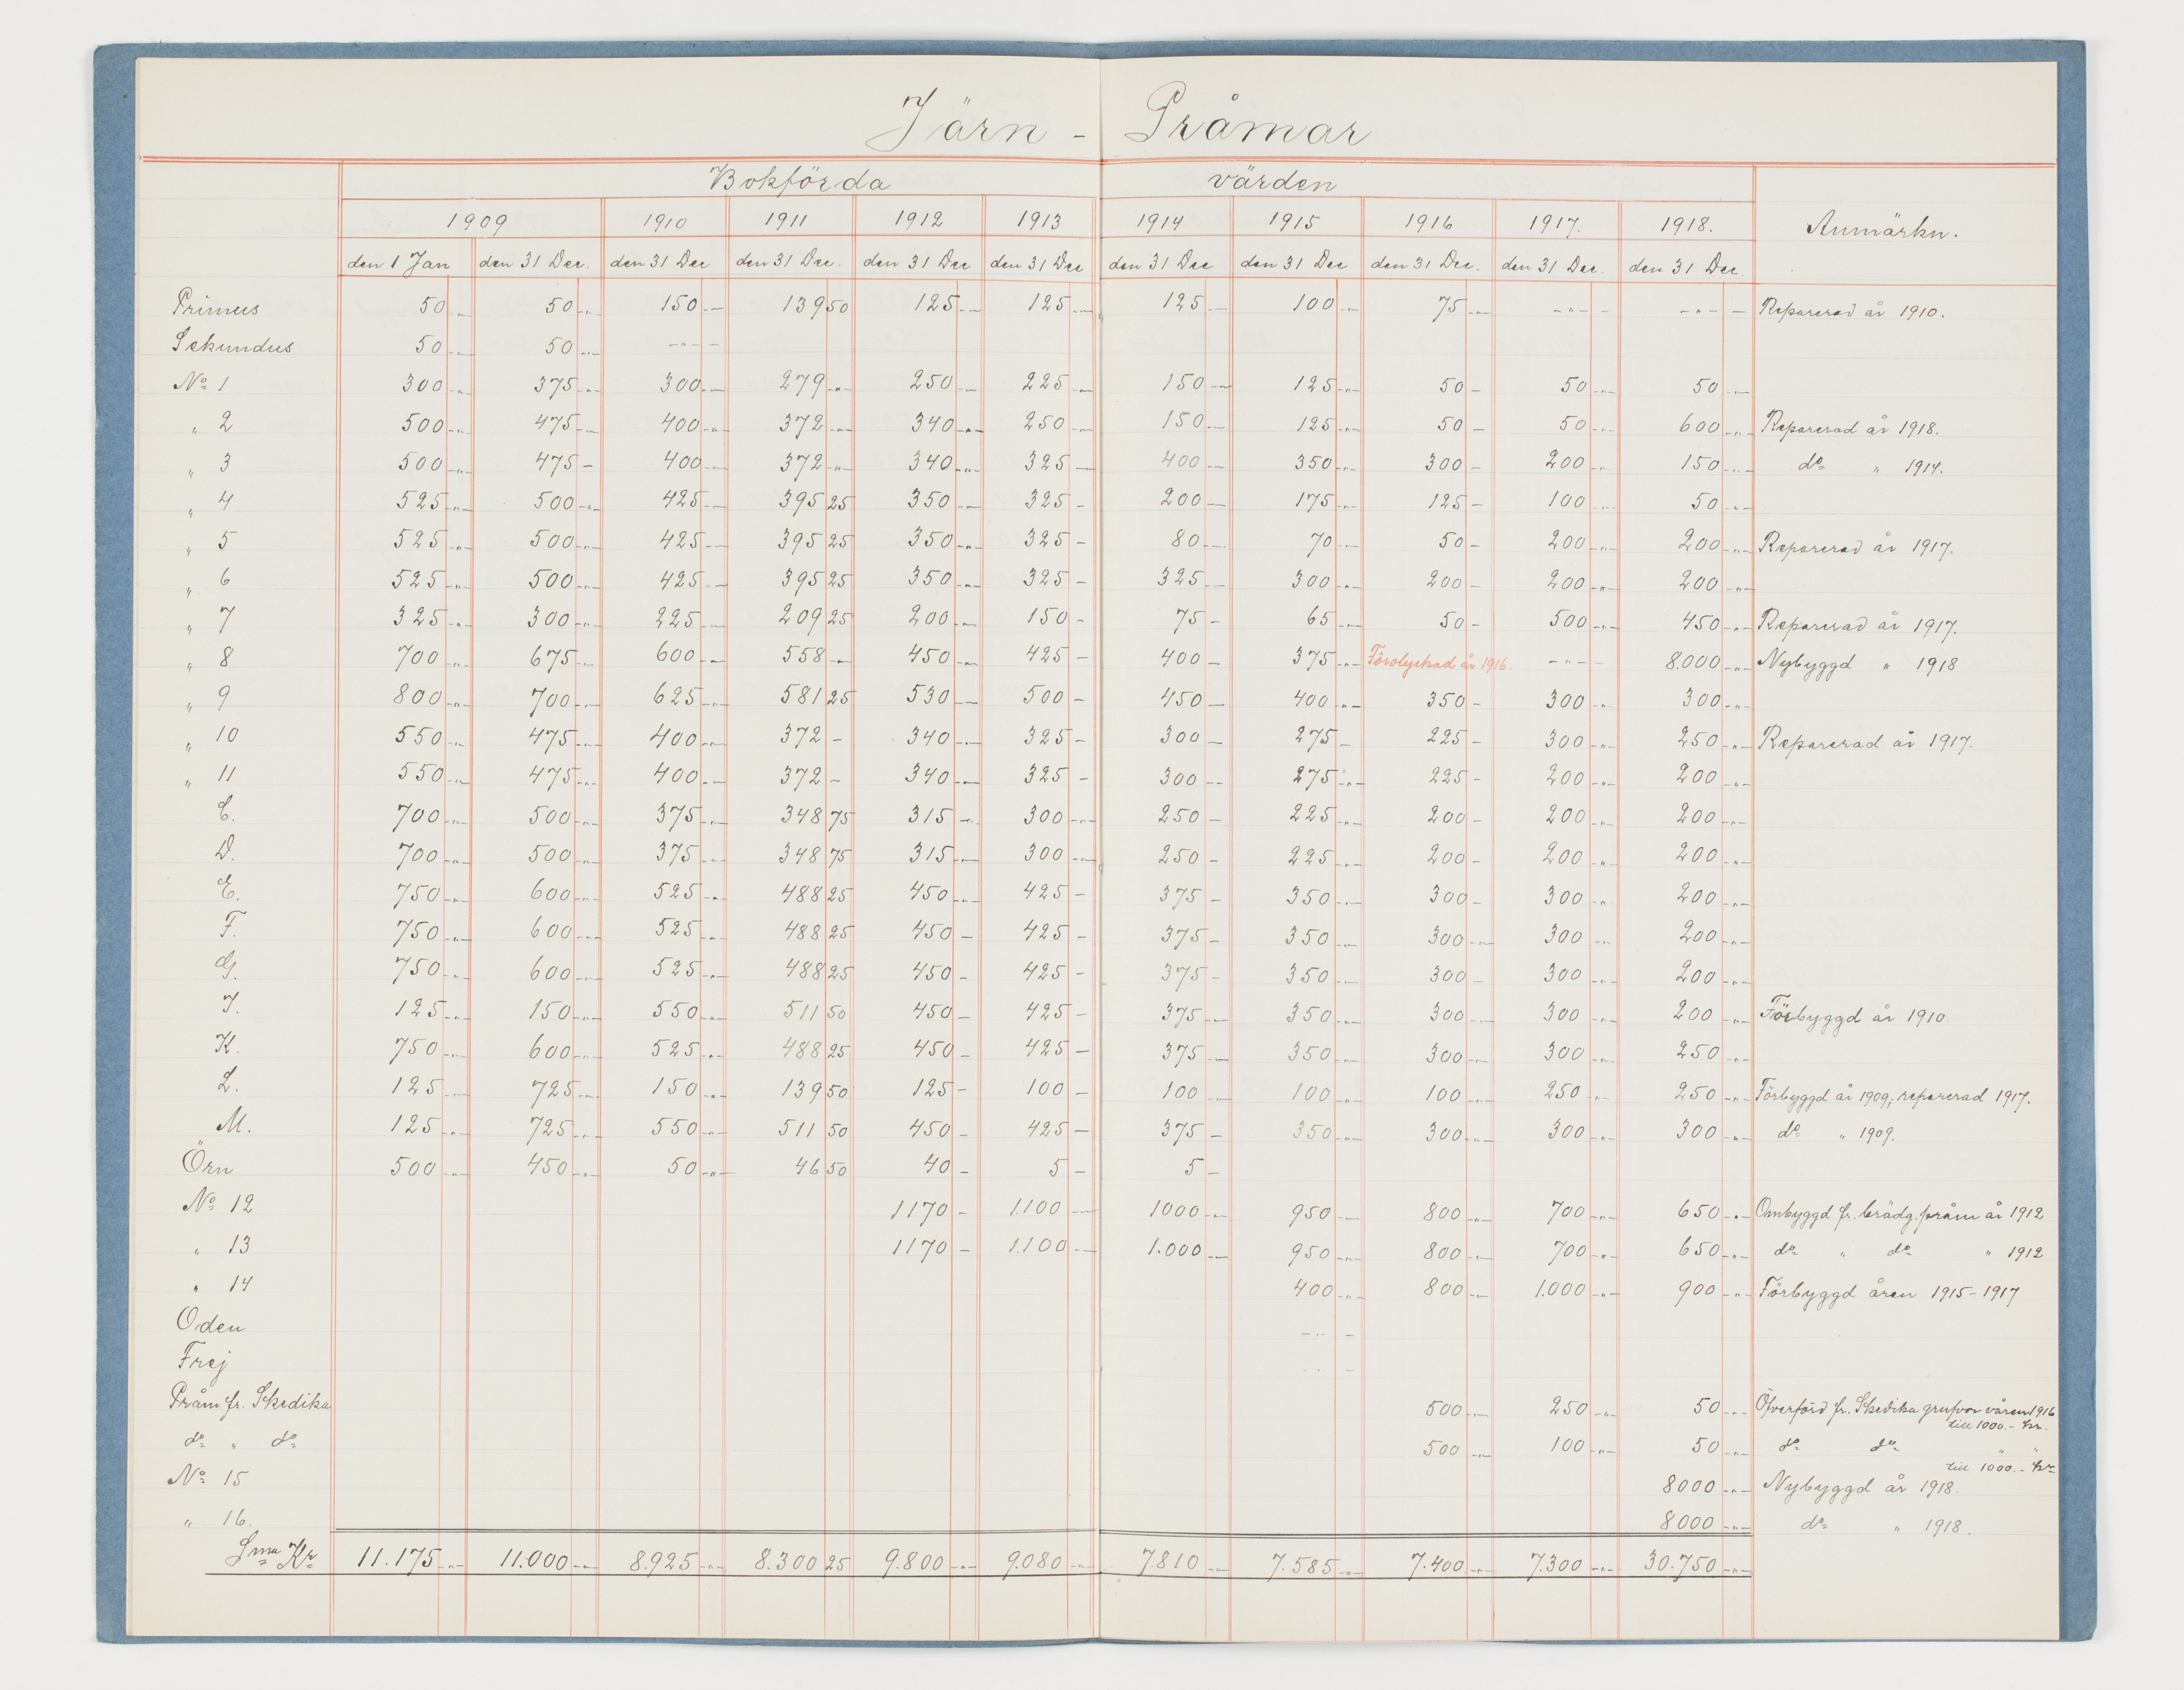 Järn - Pråmar
Bokförda värden
1909 1910 1911 1912 1913 1914 1915 1916 1917. 1918. Anmärkn.
den 1 Jan den 31 Dec. den 31 Dec den 31 Dec. den 31 Dec den 31 Dec den 31 Dec den 31 Dec den 31 Dec. den 31 Dec. den 31 Dec.
Primus 50 -"- 50 -"- 150 -- 139 50 125 -- 125 -- 125 -- 100 -- 75 -"- -"- - -"- - Reparerad år 1910.
Sekundus 50 -"- 50 -"- -"- -
No 1 300 -"- 375 -"- 300 -"- 279 -"- 250 -- 225 -"- 150 -- 125 -"- 50 - 50 -"- 50 -"-
" 2 500 -"- 475 -- 400 -"- 372 -"- 340 -"- 250 -"- 150 -- 125 -"- 50 - 50 -"- 600 -"- Reparerad år 1918.
" 3 500 -"- 475 - 400 -"- 372 -"- 340 -"- 325 -- 400 -- 350 -"- 300 - 200 -"- 150 -"- do " 1914.
" 4 525 -"- 500 -"- 425 -"- 395 25 350 -- 325 - 200 -- 175 -"- 125 - 100 -"- 50 -"-
" 5 525 -"- 500 -"- 425 -- 395 25 350 -"- 325 - 80 -- 70 -"- 50 - 200 -"- 200 -"- Reparerad år 1917.
" 6 525 -"- 500 -"- 425 -"- 395 25 350 -"- 325 - 325 -- 300 -"- 200 - 200 -"- 200 -"-
" 7 325 -"- 300 -"- 225 -- 209 25 200 -"- 150 - 75 - 65 -"- 50 - 500 -"- 450 -"- Reparerad år 1917.
" 8 700 -"- 675 -"- 600 -"- 558 -"- 450 -"- 425 - 400 - 375 -"- Förolyckad år 1916. -"- - 8.000 -"- Nybyggd " 1918
" 9 800 -"- 700 -"- 625 -"- 581 25 530 -- 500 - 450 -- 400 -"- 350 - 300 -"- 300 -"-
" 10 550 -"- 475 -"- 400 -"- 372 - 340 -"- 325 - 300 -- 275 - 225 - 300 -"- 250 -"- Reparerad år 1917.
" 11 550 -"- 475 -"- 400 -"- 372 - 340 -"- 325 - 300 -- 275 -"- 225 - 200 -"- 200 -"-
C. 700 -"- 500 -"- 375 -"- 348 75 315 -"- 300 -"- 250 - 225 -"- 200 - 200 -"- 200 -"-
D. 700 -"- 500 -"- 375 -"- 348 75 315 -"- 300 -"- 250 - 225 -"- 200 - 200 -"- 200 -"-
E. 750 -"- 600 -"- 525 -"- 488 25 450 -"- 425 - 375 - 350 -"- 300 - 300 -"- 200 -"-
F. 750 -"- 600 -"- 525 -"- 488 25 450 - 425 - 375 - 350 -"- 300 -"- 300 -"- 200 -"-
G. 750 -"- 600 -"- 525 -"- 488 25 450 - 425 - 375 - 350 -"- 300 - 300 -"- 200 -"-
I. 125 -"- 150 -"- 550 -"- 511 50 450 - 425 - 375 -"- 350 -"- 300 -"- 300 -"- 200 -"- Förbyggd år 1910.
K. 750 -"- 600 -"- 525 -"- 488 25 450 - 425 - 375 -- 350 -"- 300 -"- 300 -"- 250 -"-
L. 125 -"- 725 -"- 150 -"- 139 50 125 - 100 - 100 -- 100 -"- 100 -"- 250 -"- 250 -"- Förbyggd år 1909; reparerad 1917.
M. 125 -"- 725 -"- 550 -"- 511 50 450 - 425 - 375 - 350 -"- 300 -"- 300 -"- 300 -"- do " 1909.
Örn 500 -"- 450 -"- 50 -"- 46 50 40 - 5 - 5 -
No 12 1170 - 1.100 -- 1000 -"- 950 -"- 800 -"- 700 -"- 650 -"- Ombyggd fr. brädg. pråm år 1912
" 13 1170 - 1.100 -- 1.000 -- 950 -"- 800 -"- 700 -"- 650 -"- do " do " 1912
" 14 400 -"- 800 -"- 1.000 -"- 900 -"- Förbyggd åren 1915-1917
Oden -"- -
Frej -"- -
Pråm fr. Skedika 500 -"- 250 -"- 50 -"- Öfverförd fr. Skedika grufvor våren 1916
till 1000.- Kr.
do " do 500 -"- 100 -"- 50 -"- do do " "
till 1000.- Kr
No 15 8000 -"- Nybyggd år 1918.
" 16. 8000 -"- do " 1918.
Sma Kr 11.175 -"- 11.000 -"- 8.925 -"- 8.300 25 9.800 -"- 9.080 -"- 7.810 -"- 7.585 -"- 7.400 -"- 7.300 -"- 30.750 -"-